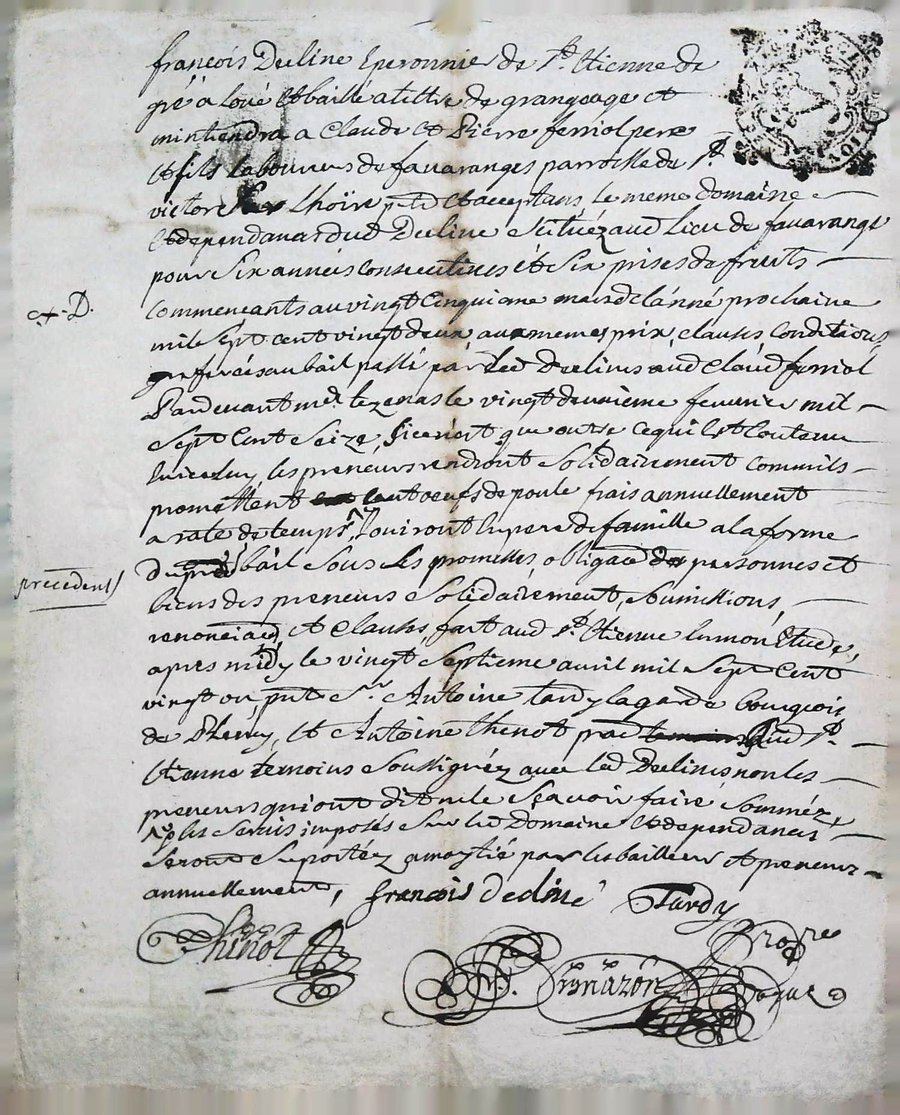 françois Decline Eperonnier de St. Etienne de
gré a loué et baillé a tittre de grangeage et
mintiendra a Claude et Pierre ferriol pere
et fils laboureurs de favaranges parroisse de St.
victore sur Lhoire pnts et acceptans le meme domaine
et dependances dud Decline scitués aud lieu de favarange
pour six années consecutives et six prises de fruits
c.+.D.
commencants au vingt cinquieme mars de lanné prochaine
mil sept cent vingt deux, aux memes prix, clauses, conditions
reserves au bail passé par led Declines aud Claud ferriol
Pardevant me. tezenas le vingt deuxieme fevrier mil
sept cent seize, si ce nest que outre ce quil est contenu
en icelluy les preneurs rendront solidairement comme ils
promettent cent oeufs de poule frais annuellement
a rate de temps, Jouiront en pere de famille a la forme
du bail sous les promesses, obligaons de personnes et
precedent
biens des preneurs solidairement, soumissions,
renonciaons, et clauses, fait aud St. Etienne en mon Etude,
apres midy le vingt septieme avril mil sept cent
vingt un, pnt Sr. Antoine tardy lagarde bourgeois
de et Antoine thenot prat aud St.
Etienne temoins soussignéz avec led Declines non les
preneurs qui ont dit ne le scavoir faire sommés,
les servis imposés sur led Domaine et dependances
seront suportéz a moytié par les bailleur et preneurs
annuellement, françois decliné Tardy
Thenot
Tronazon